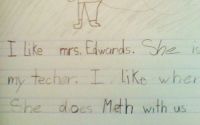 I like mrs. Edwards. She is
my techer. I like wher
She does Meth with us